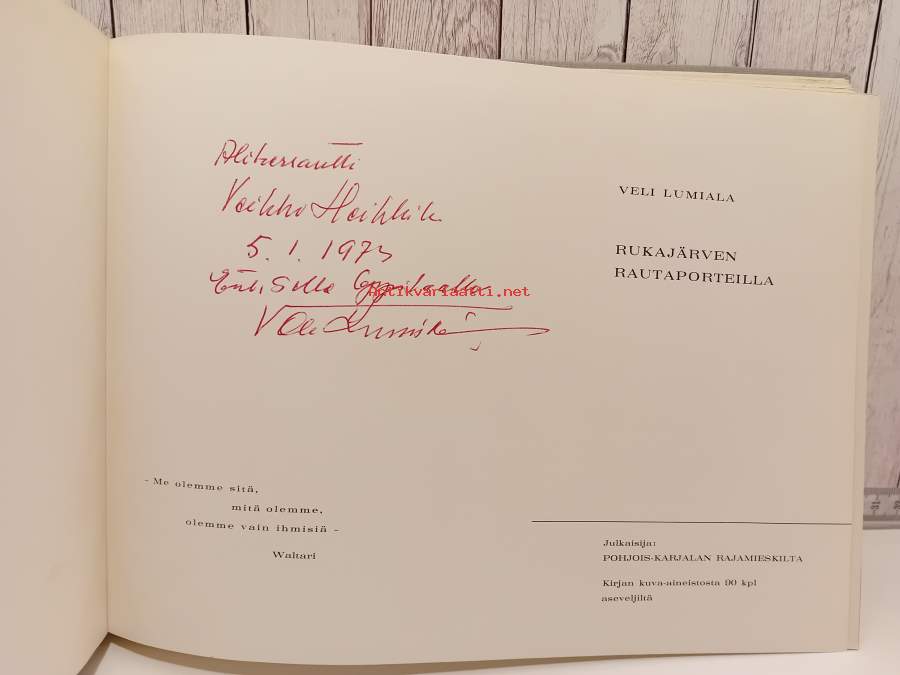 Alikersantti
Veikko Heikkilä
5.1.1973
VELI LUMIALA
RUKAJÄRVEN
RAUTAPORTEILLA
Antikvariaatti.net
- Me olemme sitä,
mitä olemme,
olemme vain ihmisiä -
Waltari
Julkaisija:
POHJOIS-KARJALAN RAJAMIESKILTA
Kirjan kuva-aineistosta 90 kpl
aseveljiltä